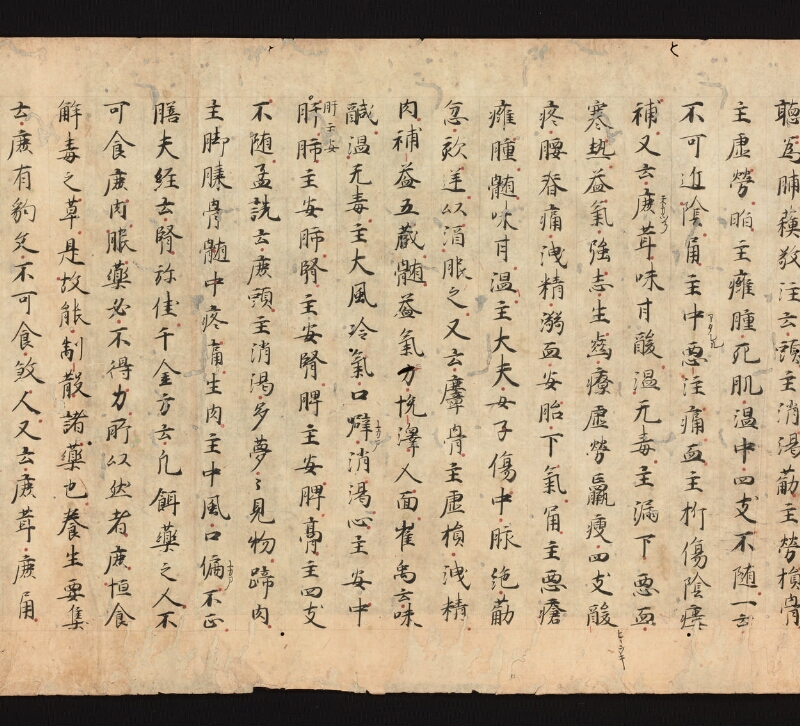 聽為脯蘓敬注云頭主消渴筋主勞損骨
主虛勞脂主癰腫死肌温中四支不随一云
不可近陰角主中惡注痛血主折傷陰痿
補又云鹿茸味甘酸温无毒主漏下惡血
寒熱益氣強志生齒療虛勞羸瘦四支酸
疼腰脊痛洩精溺血安胎下氣角主惡瘡
癰腫髄味甘温主大夫女子傷中脉絶筋
急欬逆以酒服之又云麞骨主虛損洩精
肉補益五藏髄益氣力悦澤人面崔禹云味
鹹温无毒主大風冷氣口僻消渴心主安中
肝肺主安肺腎主安腎脾主安脾膏主四支
肝主安
不随孟詵云鹿頭主消渴多夢〻見物蹄肉
主脚膝骨髄中疼痛生肉主中風口偏不正
膳夫経云腎弥佳千金方云凡餌藥之人不
可食鹿肉服藥必不得力所以然者鹿恒食
解毒之草是故能制散諸藥也養生要集
云鹿有豹文不可食煞人又云鹿茸鹿角